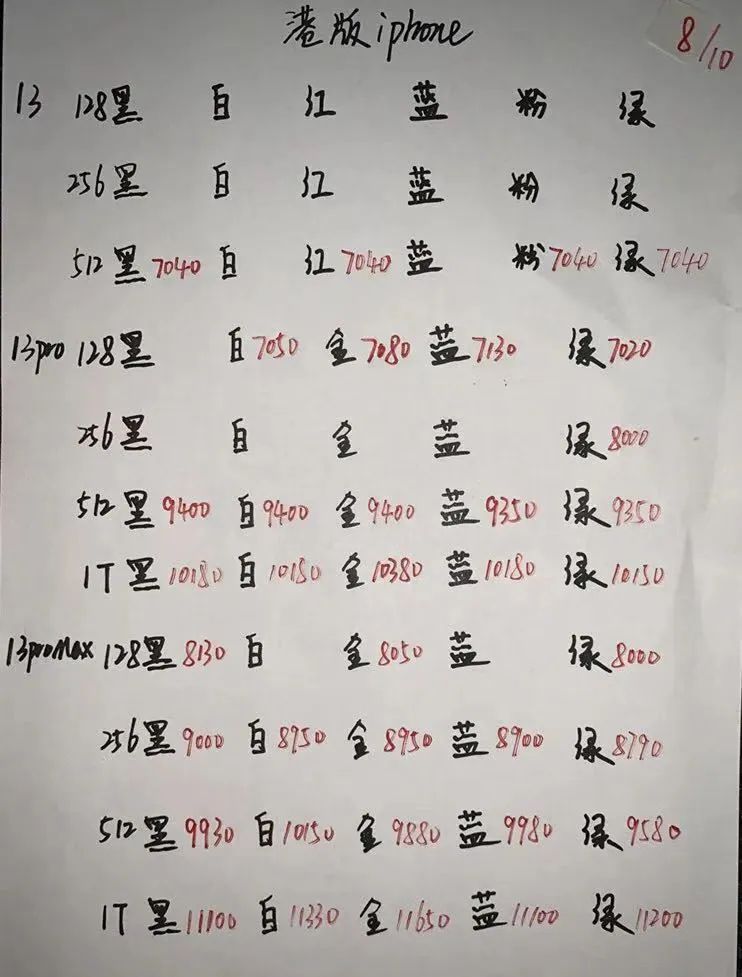 港版iphone
8/10
13 128黑 白 红 蓝 粉 绿
256黑 白 红 蓝 粉 绿
512黑7040 白 红7040 蓝 粉7040 绿7040
13pro 128黑 白7050 金7080 蓝7130 绿7020
256黑 白 金 蓝 绿8000
512黑9400 白9400 金9400 蓝9350 绿9350
1T黑10180 白10180 金10380 蓝10180 绿10150
13proMax 128黑8130 白 金8050 蓝 绿8000
256黑9000 白8950 金8950 蓝8900 绿8790
512黑9930 白10150 金9880 蓝9980 绿9580
1T黑11100 白11330 金11650 蓝11100 绿11200